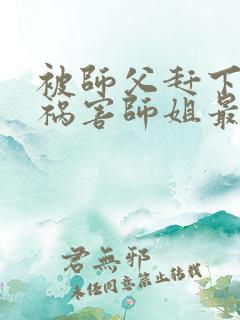 被師父赶下
祸害師姐最
君無邪
未经同意禁止转载